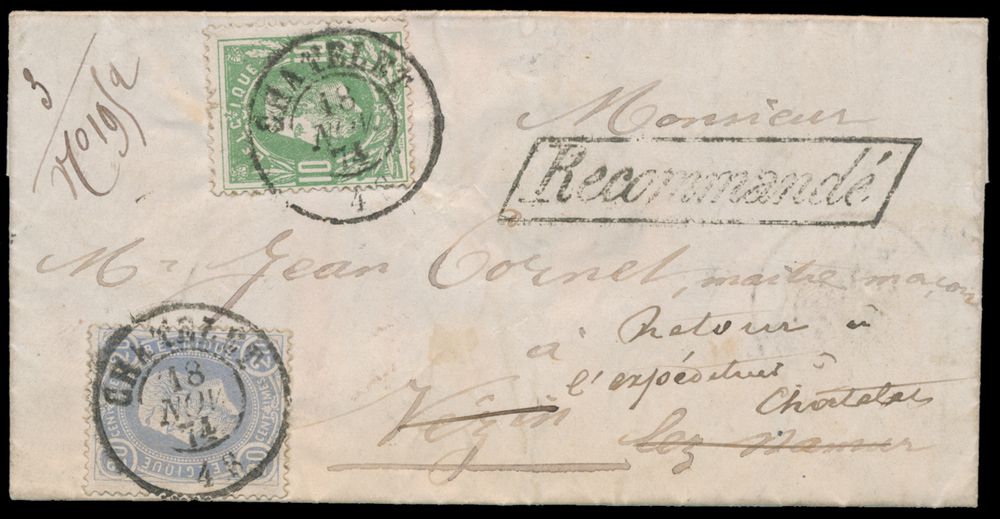 3
No 19/2
10
CHATELET
18
NOV
74
4
Monsieur
Recommandé
Mr Jean Cornet, maitre maçon
à Retour à
l'expéditeur à
Vezin Chatelet
lez Namur
CHATELET
18
NOV
74
4 S
BELGIQUE